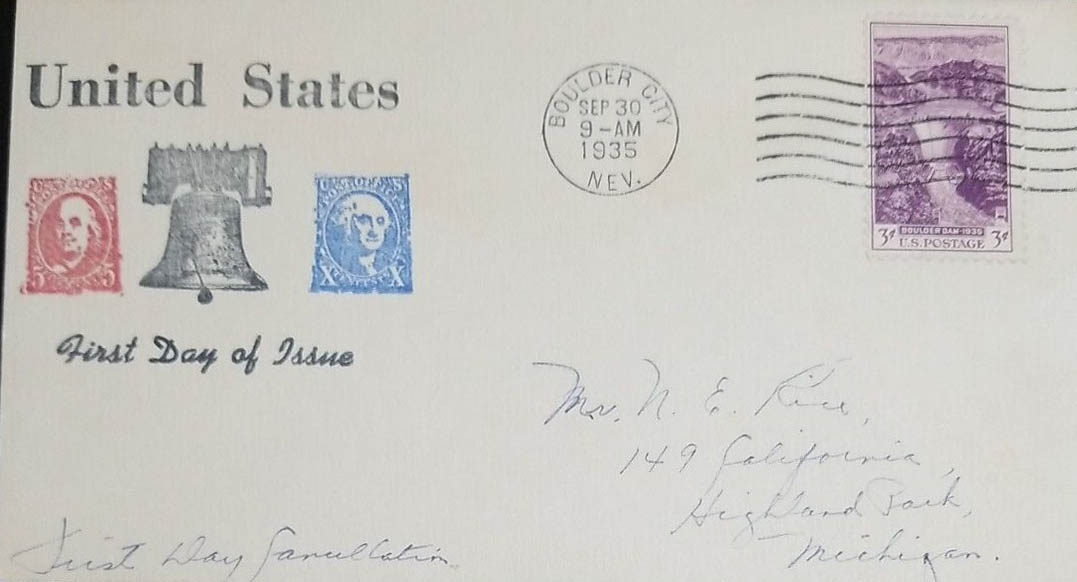 United States
BOULDER CITY
SEP 30
9-AM
1935
NEV.
BOULDER DAM-1935
3¢ U.S. POSTAGE 3¢
U S
POST OFFICE
5 5
U S
POST OFFICE
X X
First Day of Issue
Mr. N. E. Rice,
149 California,
Highland Park,
Michigan.
First Day Cancellation